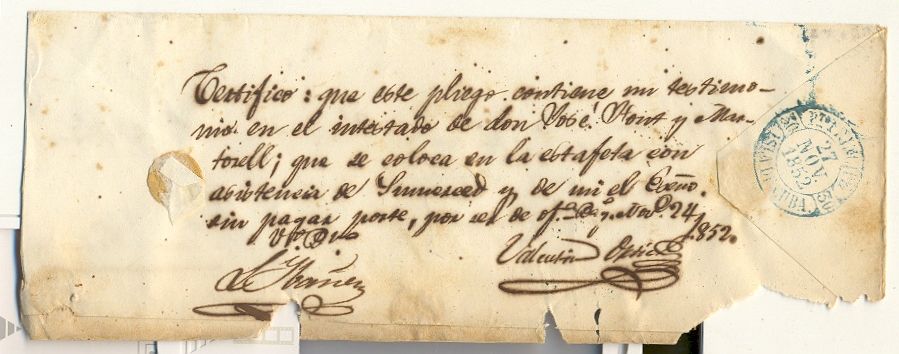 Certifico: que este pliego contiene un testimo-
nio en el intestado de don José Font y Mar-
torell; que se coloca en la estafeta con
asistencia de Sumerced y de mi el Esño.
sin pagar porte, por ser de ofº Nove. 24/
1852.
Vº Bº
Ibañez
Valentin
27
NOV
1852
CUBA